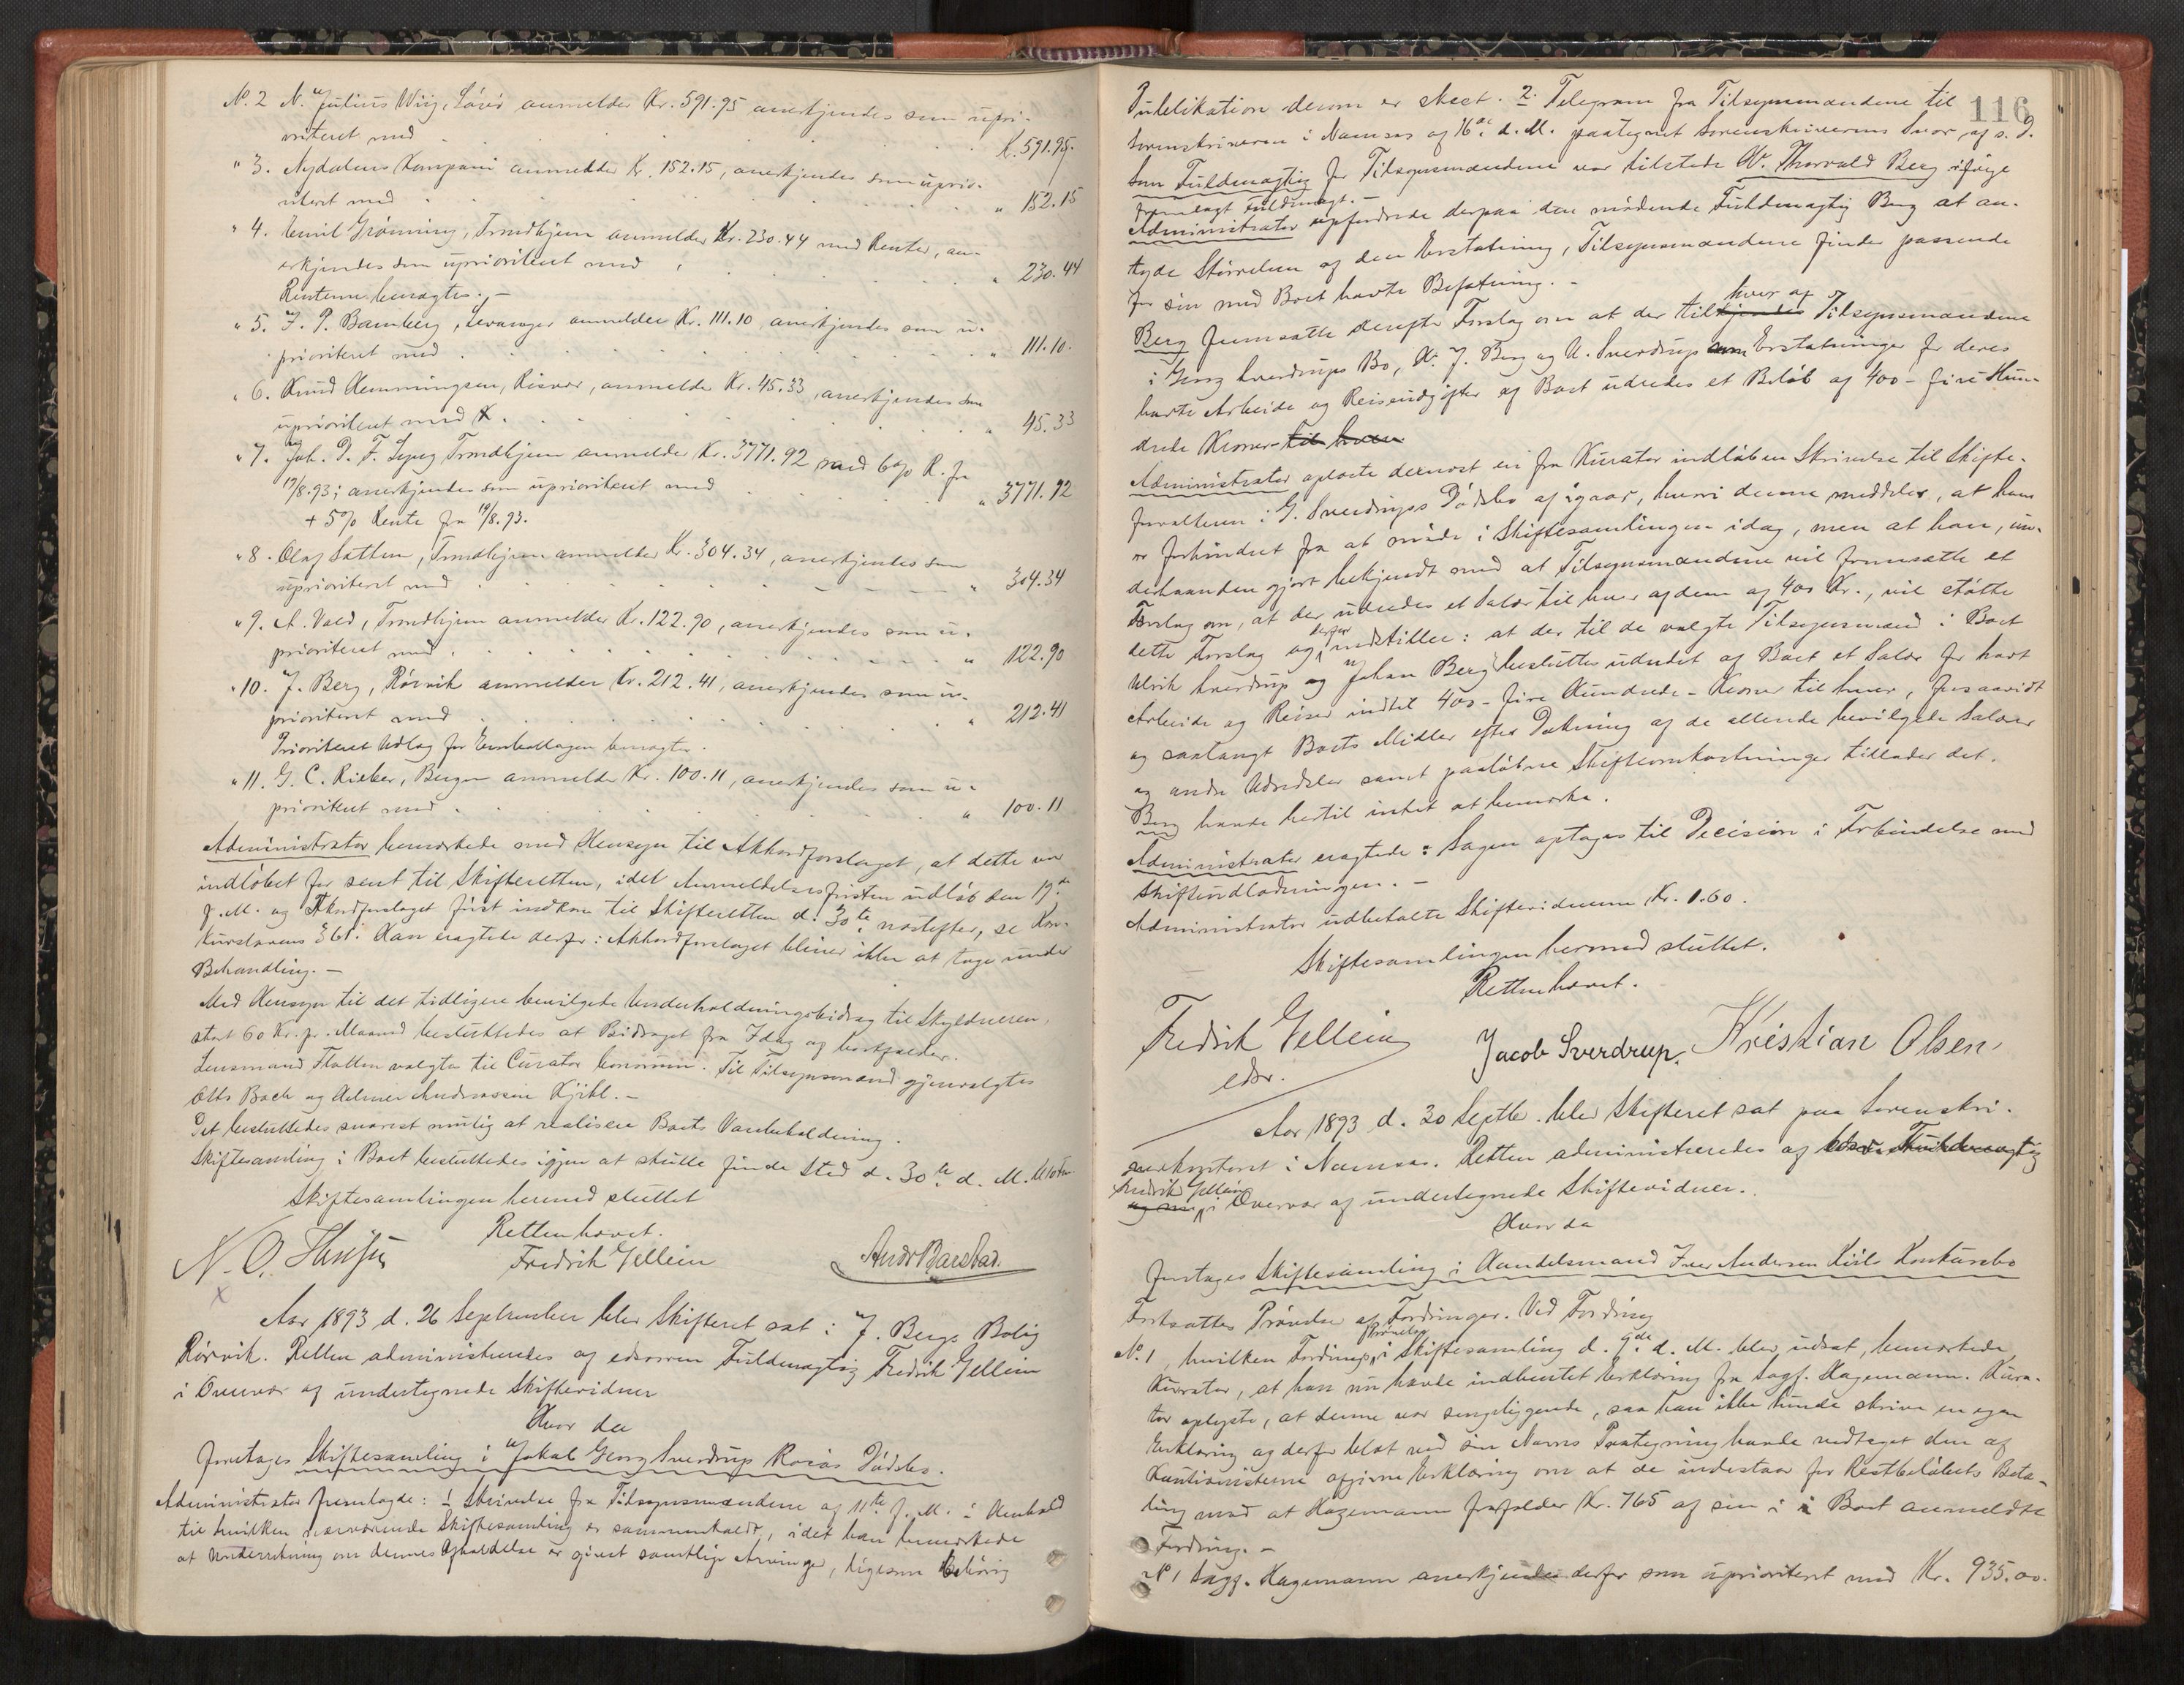 No. 2 N. Julius Wiig, anmelder Kr. 591.95 anerkjendes som upri-
oriteret med K. 591.95.
" 3. Nydalens Kompani anmelder Kr. 152.15, anerkjendes som uprio-
riteret med " 152.15
" 4. Emil Grønning, Trondhjem anmelder Kr. 230.44 med Renter, an-
erkjendes som uprioriteret med " 230.44
Renterne benægtes. –
" 5. J. P. Bamberg, Levanger anmelder Kr. 111.10 anerkjendes som u-
prioriteret med " 111.10.
" 6. Knud Hemmingsen, Risvær, anmelder Kr. 45.33, anerkjendes som
uprioriteret med K. " 45.33
" 7. Joh. D. F. Lysg Trondhjem anmelder Kr. 3771.92 med 6% R. fra
19/8.93; anerkjendes som uprioriteret med " 3771.92
+ 5% Rente fra 19/8.93.
" 8. Olaf Sætten, Trondhjem anmelder Kr. 304.34, anerkjendes som
uprioriteret med " 304.34
" 9. A. Vold, Trondhjem anmelder Kr. 122.90, anerkjendes som u-
prioriteret med " 122.90
" 10. J. Berg, Rørvik anmelder Kr. 212.41, anerkjendes som u-
prioriteret med " 212.41
Prioriteret Udlæg for Emballagen benægtes.
" 11. G. C. Rieber, Bergen anmelder Kr. 100.11, anerkjendes som u-
prioriteret med " 100.11
Administrator bemærkede med Hensyn til Akkordforslaget, at dette var
indløbet for sent til Skifteretten, idet Anmeldelsesfristen udløb den 19de
f. M. og Akkordforslaget først indkom til Skifteretten d. 30te næstefter, se Kon-
kurslovens § 61. Han eragtede derfor: Akkordforslaget bliver ikke at tage under
Behandling. –
Med Hensyn til det tidligere bevilgede Underholdningsbidrag til Skyldneren,
stort 60 Kr. pr. Maaned besluttedes at Bidraget fra Idag af bortfalder.
Lensmand Flatten valgtes til Curator bonorum. Til Tilsynsmænd gjenvalgtes
Otto Bach og Helmer Andreassen Kjihl. –
Det besluttedes snarest mulig at realisere Boets Varebeholdning.
Skiftesamling i Boet besluttedes igjen at skulle finde Sted d. 30te d. M.
Skiftesamlingen hermed sluttet
Retten hævet.
N. O. Hansen Fredrik Gellein Andr Barstad.
x
Aar 1893 d. 26 September blev Skifteret sat i J. Bergs Bolig
Rørvik. Retten administreredes af edsvoren Fuldmægtig Fredrik Gellein
i Overvær af undertegnede Skiftevidner
Hvor da
foretages Skiftesamling i Jakob Georg Sverdrups Dødsbo.
Administrator fremlagde: 1 Skrivelse fra Tilsynsmændene af 11te f. M. i Henhold
til hvilken nærværende Skiftesamling er sammenkaldt, idet han bemærkede
at Underretning om dennes Afholdelse er givet samtlige Arvinger, ligesom Behørig
116
Publikation derom er skeet. 2. Telegram fra Tilsynsmændene til
Sorenskriveren i Namsos af 16de d. M. paategnet Sorenskriverens Svar af s. D.
Som Fuldmægtig for Tilsynsmændene var tilstede Hr. Thorvald Berg ifølge
fremlagt Fuldmagt. –
Administrator opfordrede derpaa den mødende Fuldmægtig Berg at an-
tyde Størrelsen af den Erstatning, Tilsynsmændene finder passende
for sin med Boet havte Befatning. –
hver af
Berg fremsatte derefter Forslag om at der tilkjendes Tilsynsmændene
i Georg Sverdrups Bo, Hr. J. Berg og U. Sverdrup som Erstatninger for deres
havte Arbeide og Reiseudgifter af Boet udredes et Beløb af 400 – fire Hun-
drede Kroner til hver
Administrator oplæste dernæst en fra Kurator indløben Skrivelse til Skifte-
forvalteren i G. Sverdrups Dødsbo af igaar, hvori denne meddeler, at han
er forhindret fra at møde i Skiftesamlingen idag, men at han, un-
derhaanden gjort bekjendt med at Tilsynsmændene vil fremsætte et
Forslag om, at der udredes et Salær til hver af dem af 400 Kr., vil støtte
dette Forslag og derfor indstiller: at der til de valgte Tilsynsmænd i Boet
Ulrik Sverdrup og Johan Berg besluttes udredet af Boet et Salær for havt
Arbeide og Reiser indtil 400 – fire Hundrede – Kroner til hver, forsaavidt
og saalangt Boets Midler efter Dækning af de allerede bevilgede Salærer
og andre Udredsler samt paaløbne Skifteomkostninger tillader det.
Berg havde hertil intet at bemærke.
Administrator eragtede: Sagen optages til Decision i Forbindelse med
Skifteudlodningen. –
Administrator udbetalte Skiftevidnerne Kr. 1.60.
Skiftesamlingen hermed sluttet.
Retten hævet.
Fredrik Gellein Jacob Sverdrup. Kristian Olsen,
edsv.
Aar 1893 d. 30 Septbr. blev Skifteret sat paa Sorenskri-
verkontoret i Namsos. Retten administreredes af edsv. Fuldmægtig
Fredrik Gellein
i Overvær af undertegnede Skiftevidner.
Hvor da
foretages Skiftesamling i Handelsmand Iver Andersen Kiils Konkursbo
Fortsattes Prøvelse af Fordringer. Ved Fordring
No. 1, hvilken Fordrings Prøvelse i Skiftesamling d. 9de d. M. blev udsat, bemærkede
Kurator, at han nu havde indhentet Erklæring fra Sagf. Hagemann. Kura-
tor oplyste, at denne var sengeliggende, saa han ikke kunde skrive en egen
Erklæring og derfor blot ved sin Navns Paategning havde vedtaget den af
Kautionisterne afgivne Erklæring om at de indestaar for Restbeløbets Beta-
ling mod at Hagemann frafalder Kr. 765 af sin i i Boet anmeldte
Fordring. –
No. 1 Sagf. Hagemann anerkjendes derfor som uprioriteret med Kr. 935.00.